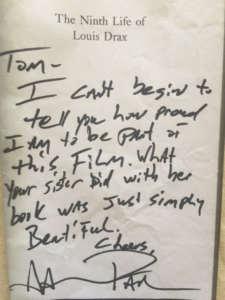 The Ninth Life of
Louis Drax
Tom-
I can't begin to
tell you how proud
I am to be part of
this Film. What
your sister did with her
book was just simply
Beautiful.
Cheers,